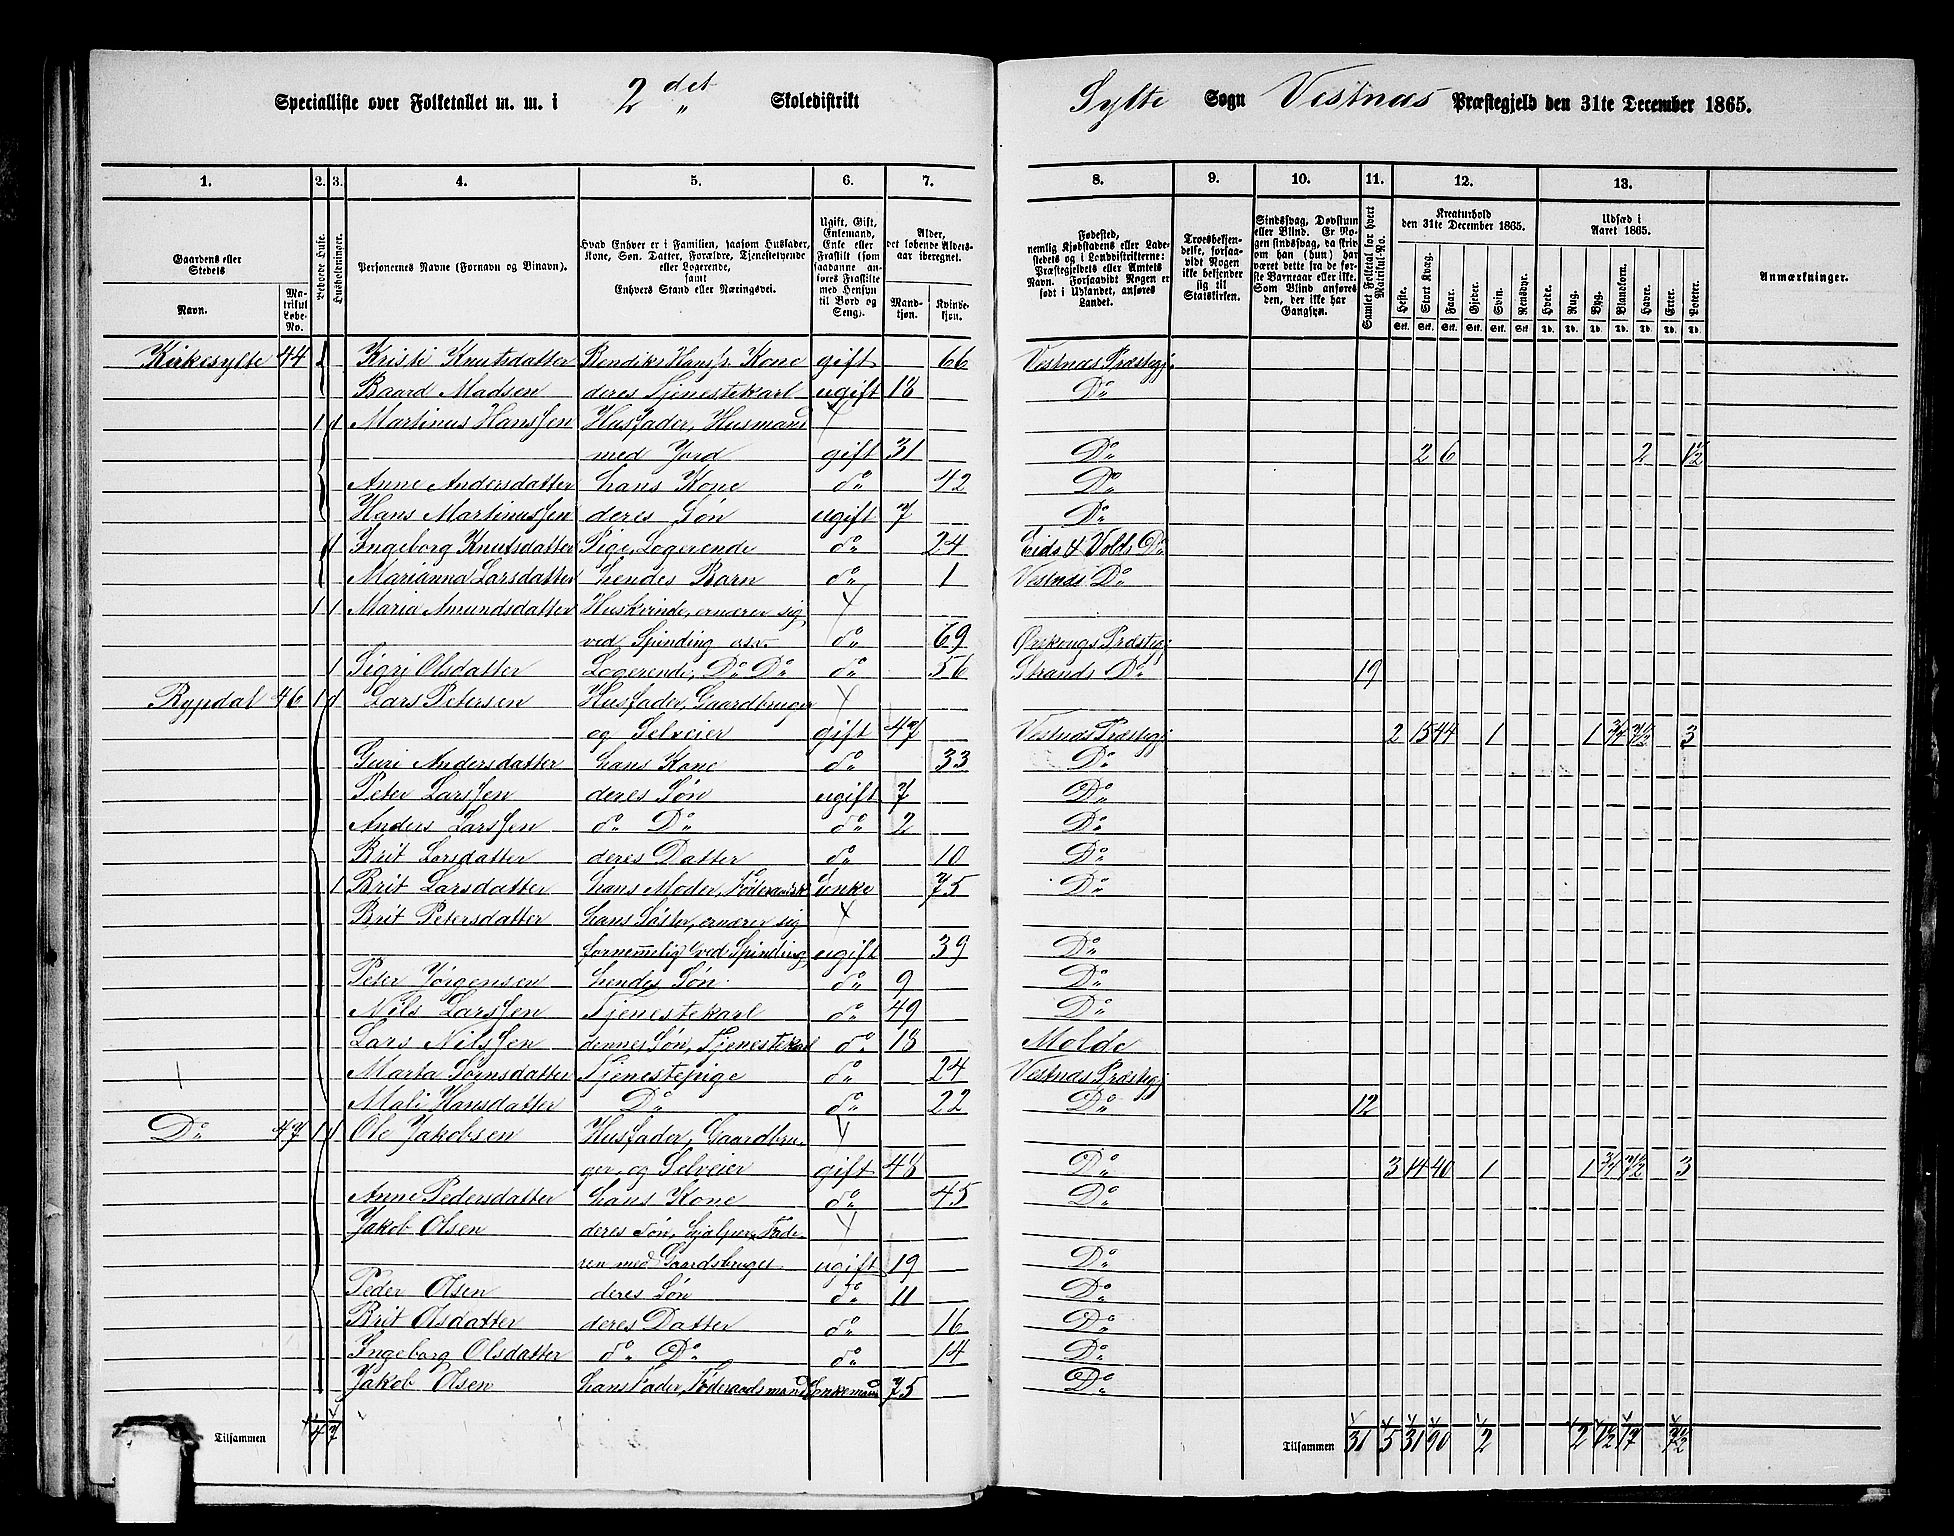 Specialliste over Folketallet m. m. i 2det Skoledistrikt Sylte Sogn Vestnæs Præstegjeld den 31te December 1865.
1. 2. 3. 4. 5. 6. 7. 8. 9. 10. 11. 12. 13.
Gaardens eller Stedets
Navn.
Matrikul Løbe-No.
Beboede Huse.
Husholdninger.
Personernes Navne (Fornavn og Tilnavn).
Hvad Enhver er i Familien, saasom Husfader, Kone, Søn, Datter, Forældre, Tjenestetyende eller Logerende, samt Enhvers Stand eller Næringsvei.
Ugift, Gift, Enkemand, Enke eller Fraskilt (som saadanne anføres Fraskilte med Hensyn til Bord og Seng).
Alder, det løbende Alders-aar iberegnet.
Mandkjøn. Kvindekjøn.
Fødested,
Troesbekjendelse, forsaavidt Nogen ikke bekjender sig til Statskirken.
Sindssvag, Døvstum eller Blind.
Samlet Folketal for hvert Matrikul-No.
Kreaturhold den 31te December 1865.
Heste. Stort Kvæg. Faar. Gjeder. Svin. Rensdyr.
Udsæd i Aaret 1865.
Hvede. Rug. Byg. Blandkorn. Havre. Erter. Poteter.
Anmærkninger.
Kirkesylte 44 Kristi Knutsdatter Rendiks Hanss. Kone gift 66 Vestnæs Præstegj.
Baard Madsen deres Tjenestekarl ugift 18 Do
1 1 Martinus Hanssen Husfader, Husmand
med Jord gift 31 Do 2 6 2 1½
Anne Andersdatter hans Kone do 42 Do
Hans Martinussen deres Søn ugift 7 Do
1 Ingeborg Knutsdatter Pige, Logerende do 24 Eids & Volds Do
Marianna Larsdatter hendes Barn do 1 Vestnæs Do
1 1 Maria Amundsdatter Huskvinde, ernærer sig
ved Spinding osv. do 69 Ørskougs Præstegj
1 Sigri Olsdatter Logerende, Do Do do 56 Strands Do 19
Rypdal 46 1 1 Lars Petersen Husfader, Gaardbruger
og Selveier gift 47 Vestnæs Præstegj 2 15 44 1 1 3/4 7½ 3
Guri Andersdatter hans Kone do 33 Do
Peter Larssen deres Søn ugift 7 Do
Anders Larssen do Do do 2 Do
Brit Larsdatter deres Datter do 10 Do
1 Brit Larsdatter hans Moder, Føderaadsk enke 75 Do
Brit Petersdatter hans Søster, ernærer sig
fornemmelig ved Spinding ugift 39 Do
Peter Jørgensen hendes Søn do 9 Do
Nils Larssen Tjenestekarl do 49 Do
Lars Nilssen dennes Søn, Tjenestekarl do 18 Molde
Marta Tornsdatter Tjenestepige do 24 Vestnæs Præstegj
Mali Hansdatter Do do 22 Do 12
Do 47 1 1 Ole Jakobsen Husfader, Gaardbru-
ger, og Selveier gift 48 Do 3 14 40 1 1 3/4 7½ 3
Anne Pedersdatter hans Kone do 45 Do
Jakob Olsen deres Søn, hjelper Fade-
ren med Gaardsbruget ugift 19 Do
Peder Olsen deres Søn do 11 Do
Brit Olsdatter deres Datter do 16 Do
Ingeborg Olsdatter do Do do 14 Do
Jakob Olsen hans Fader, Føderaadsmand Enkemand 75 Do
Tilsammen 4 7 Tilsammen 31 5 31 90 2 2 1½ 17 7½